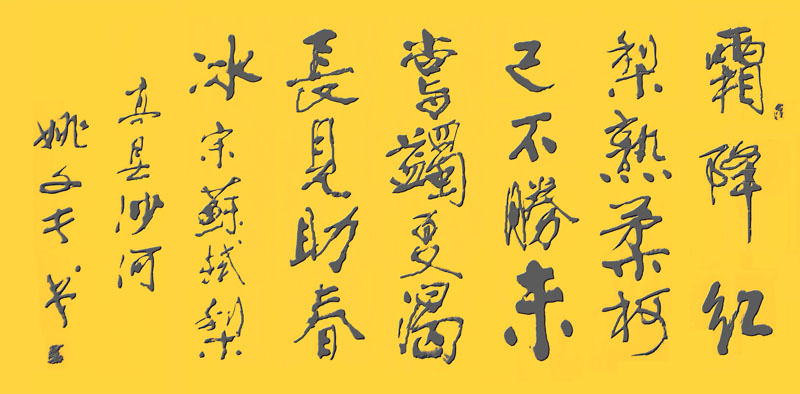 霜降红
梨熟柔柯
已不勝未
嘗蠲夏渴
長見助春
冰宋蘇軾梨
沙河
姚